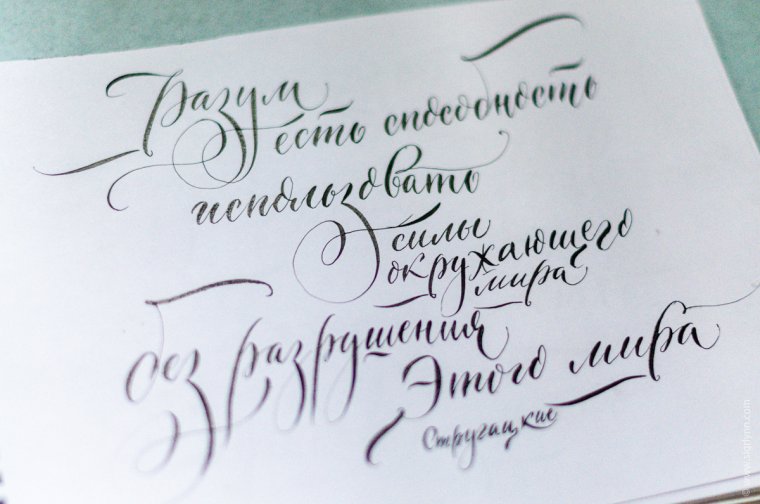 Разум
есть способность
использовать
силы
окружающего
мира
без разрушения
этого мира
Стругацкие